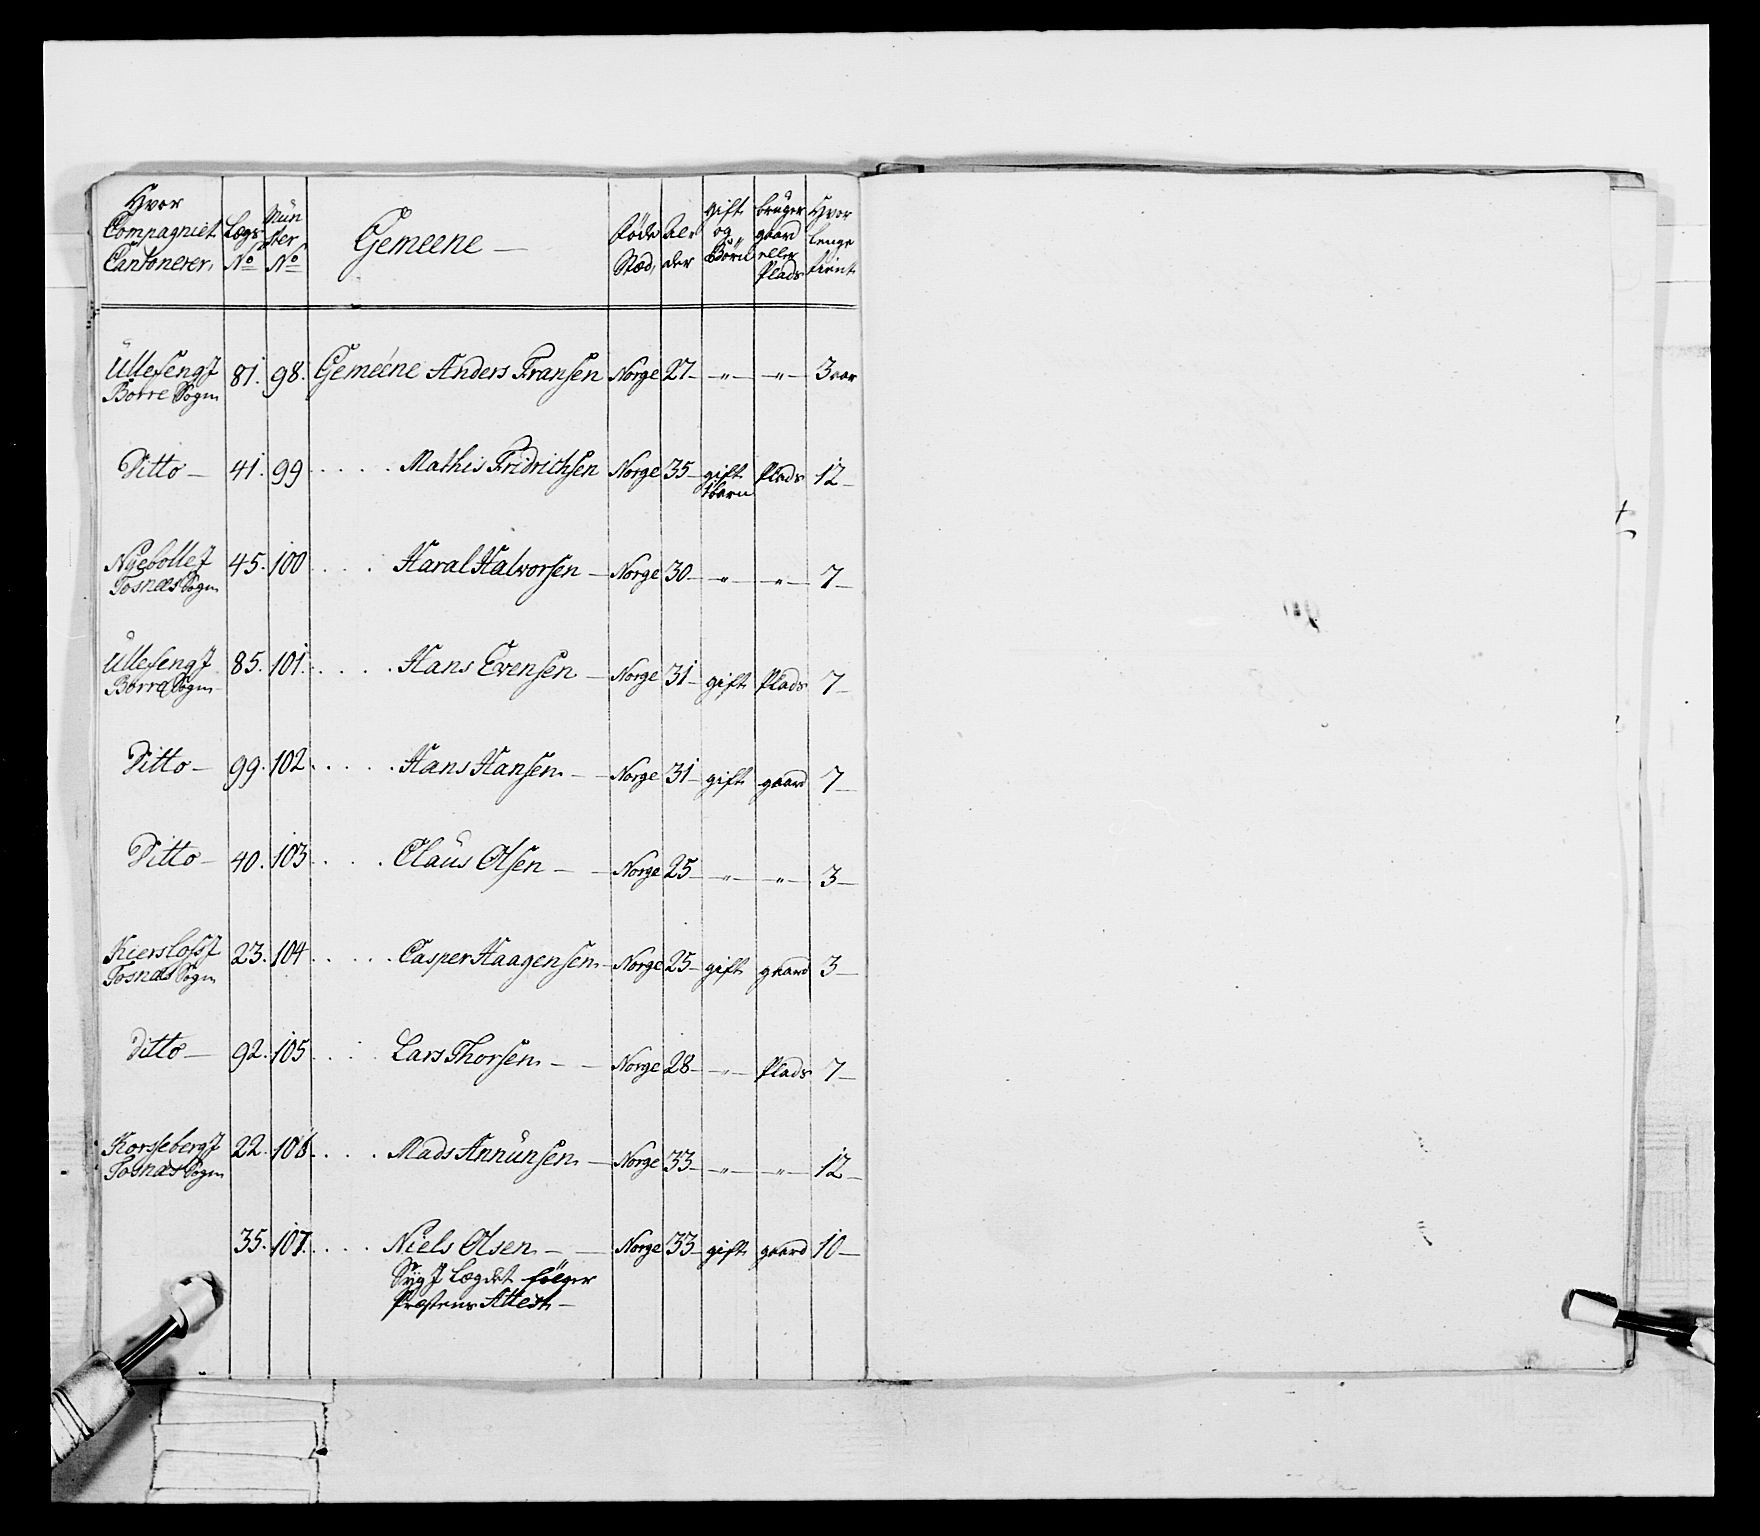 Hvor Compagniet Cantonerer, Lægs No Mün ster No Gemeene — Føde Stæd, Al- der gift og Börn brüger gaard eller Plads Hvor lenge tient
Üllesengſ Borre Sogn 81. 98. Gemeene Anders Fransen Norge 27 — „ — — „ — 3 aar
Ditto — 41. 99 . . . . . Mathis Fridrichsen Norge 35 — gift 1 barn Plads 12 —
Tosnæs Sogn 45. 100 . . . . Haral Halvorsen — Norge 30 — — „ — — „ — 7 —
Üllesengſ Borre Sogn 85. 101. . . . . Hans Evensen — Norge 31 — gift Plads 7 —
Ditto — 99. 102 . . . . . Hans Hansen — — Norge 31 — gift gaard 7 —
Ditto — 40. 103 . . . Claüs Olsen — — Norge 25 — — „ — — „ — 3 —
Tosnæs Sogn 23. 104 . . . . . Casper Haagensen — Norge 25 — gift gaard 3 —
Ditto — 92. 105 . . . . Lars Thorsen — — Norge 28 — — „ — Plads 7 —
Tosnæs Sogn 22. 106 . . . . Mads Annünsen — Norge 33 — — „ — — „ — 12 —
35. 107 . . . . Niels Olsen — — Norge 33 — gift gaard 10 —
Syg J Lægdet følger
Præstens Attest —